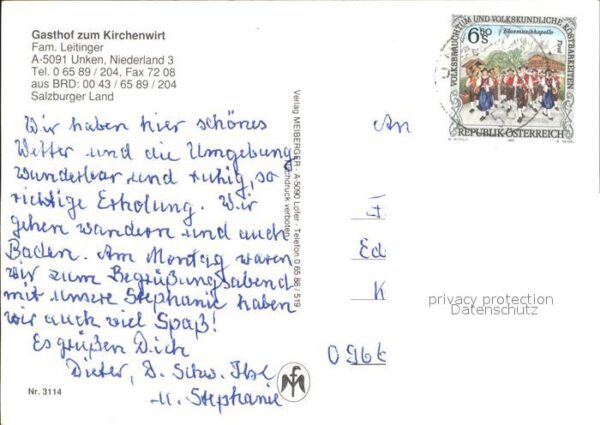 Gasthof zum Kirchenwirt
Fam. Leitinger
A-5091 Unken, Niederland 3
Tel. 0 65 89 / 204, Fax 72 08
aus BRD: 00 43 / 65 89 / 204
Salzburger Land
Wir haben hier schönes
Wetter und die Umgebung
wunderbar und ruhig, so
richtige Erholung. Wir
gehen wandern und auch
Baden. Am Montag waren
wir zum Begrüßungsabend
mit unsere Stephanie haben
wir auch viel Spaß!
Es grüßen Dich
Dieter, D. Schw. Ilse
u. Stephanie
Nr. 3114
Verlag MEIBERGER · A-5090 Lofer · Telefon 0 65 88 / 519
druck verboten
An
Ed
K
0966
VOLKSBRAUCHTUM UND VOLKSKUNDLICHE KOSTBARKEITEN
6.50 S
Blasmusikkapelle
Tirol
REPUBLIK ÖSTERREICH
1997
privacy protection
Datenschutz